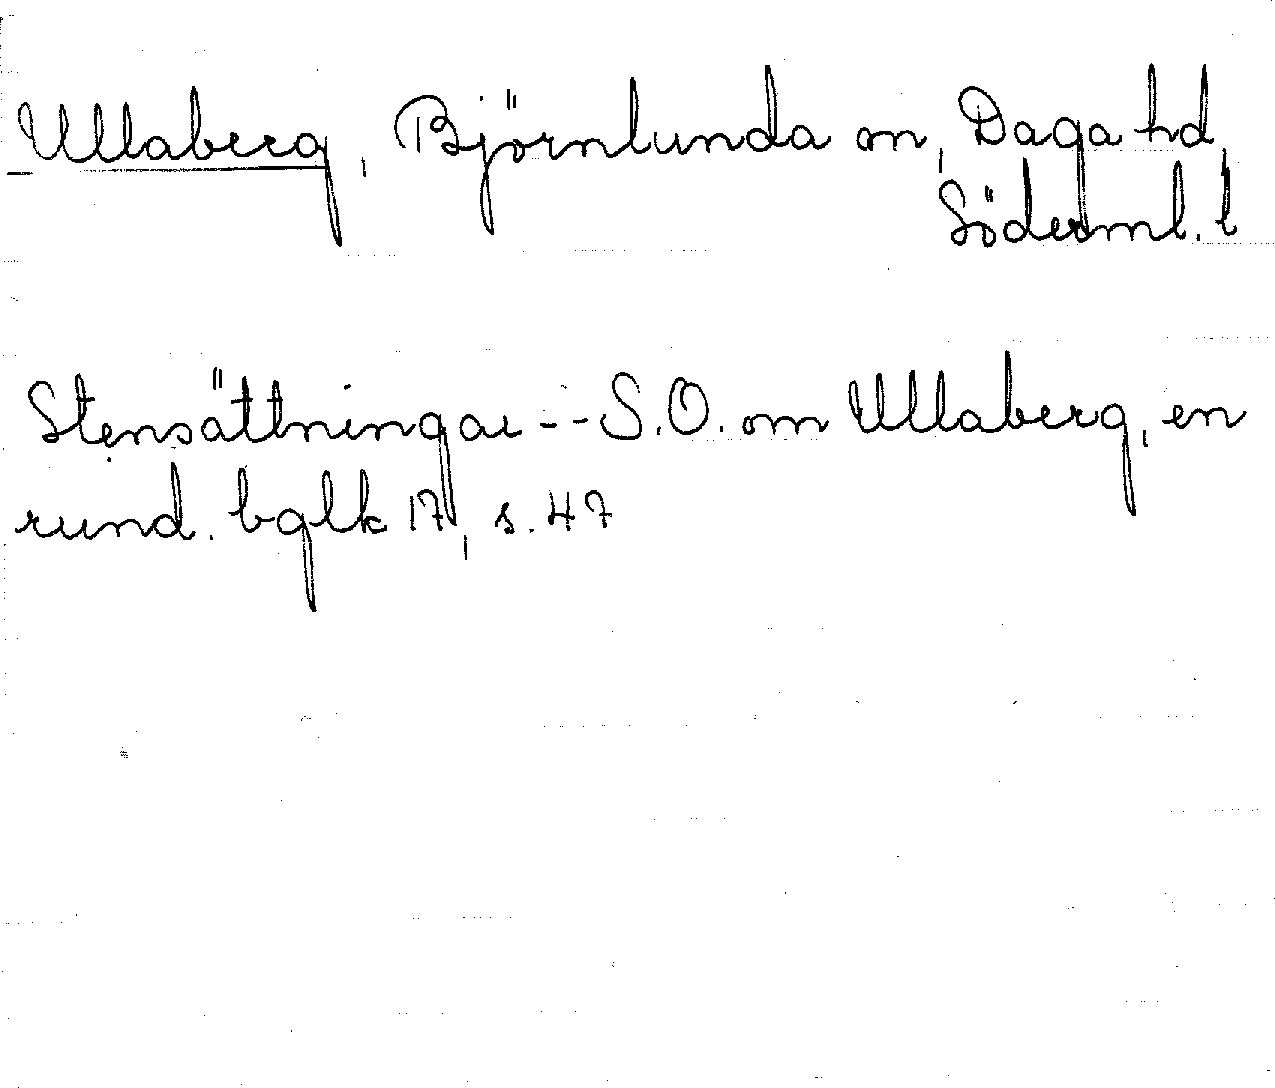 Ullaberg, Björnlunda sn, Daga hd,
Söderml. l
Stensättningar -- S.O. om Ullaberg, en
rund. bglk 17, s. 47